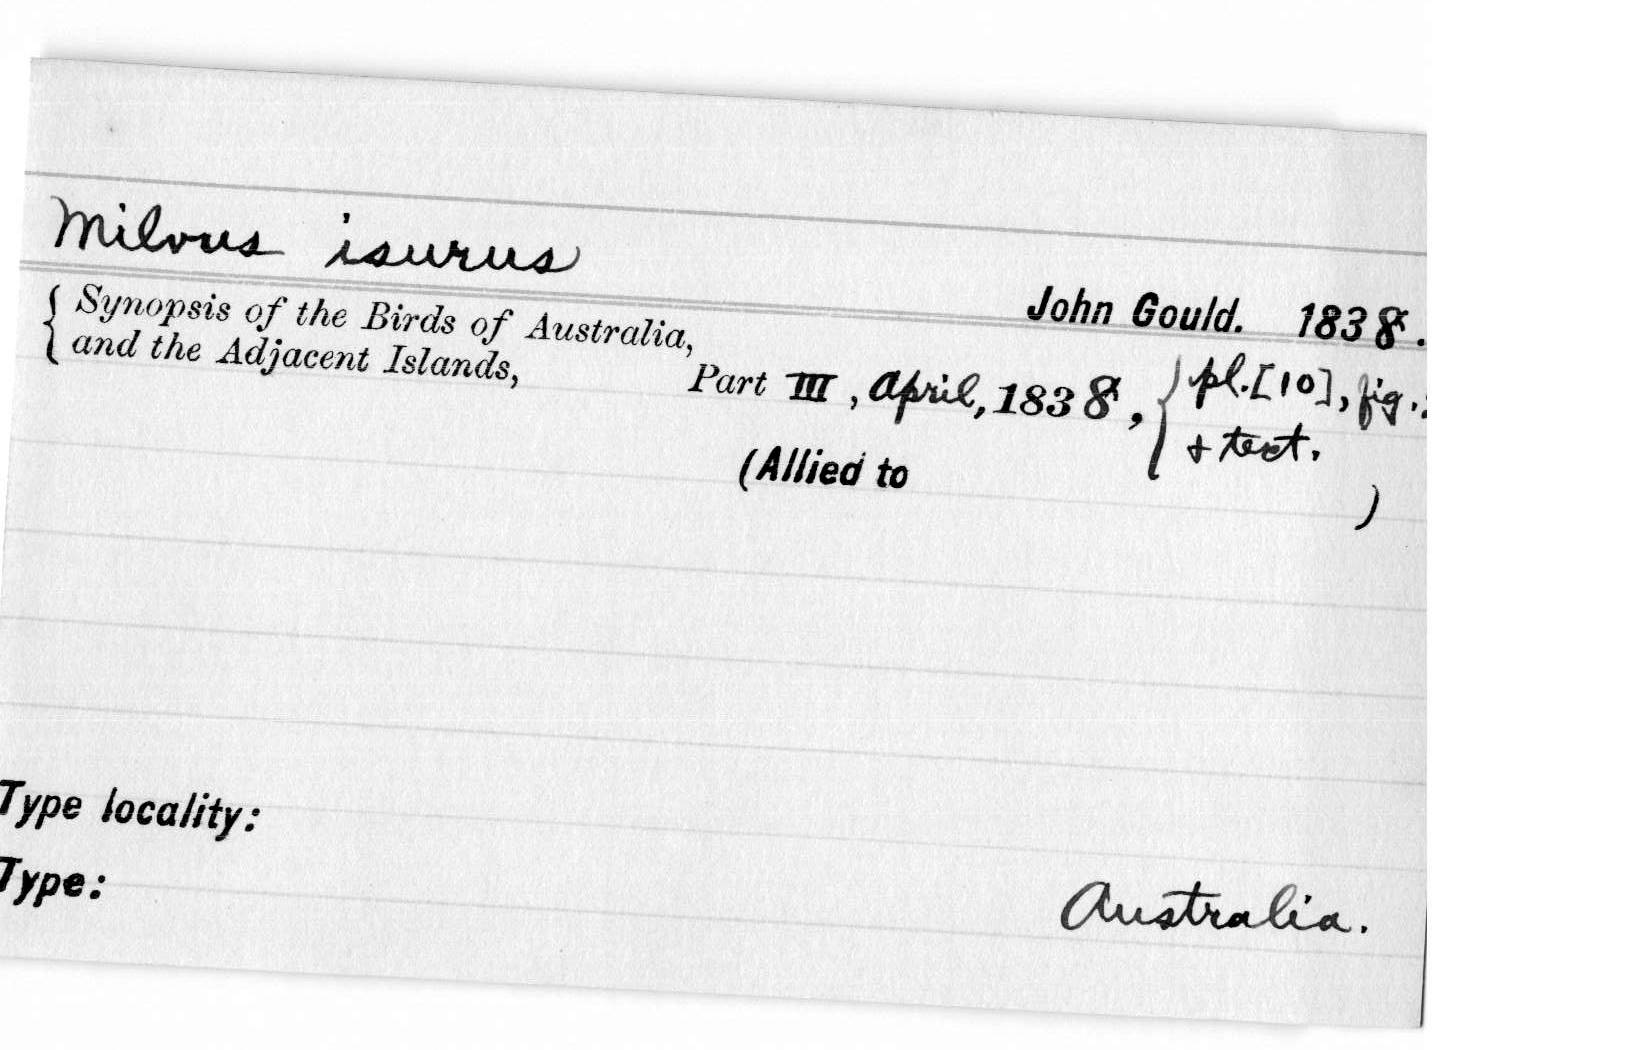 Milvus isurus
John Gould. 1838.
Synopsis of the Birds of Australia,
and the Adjacent Islands,
Part III, April, 1838, pl.[10], fig.
& text.
(Allied to )
Type locality:
Type:
Australia.